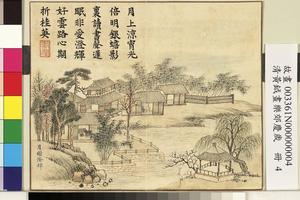 月上涼宵光
倍明銀蟾影
裏讀書聲遙
眠非愛澄輝
好雲路心期
折桂英
故畫003361N000000004
清黃鉞畫樂郊慶歲 冊 4